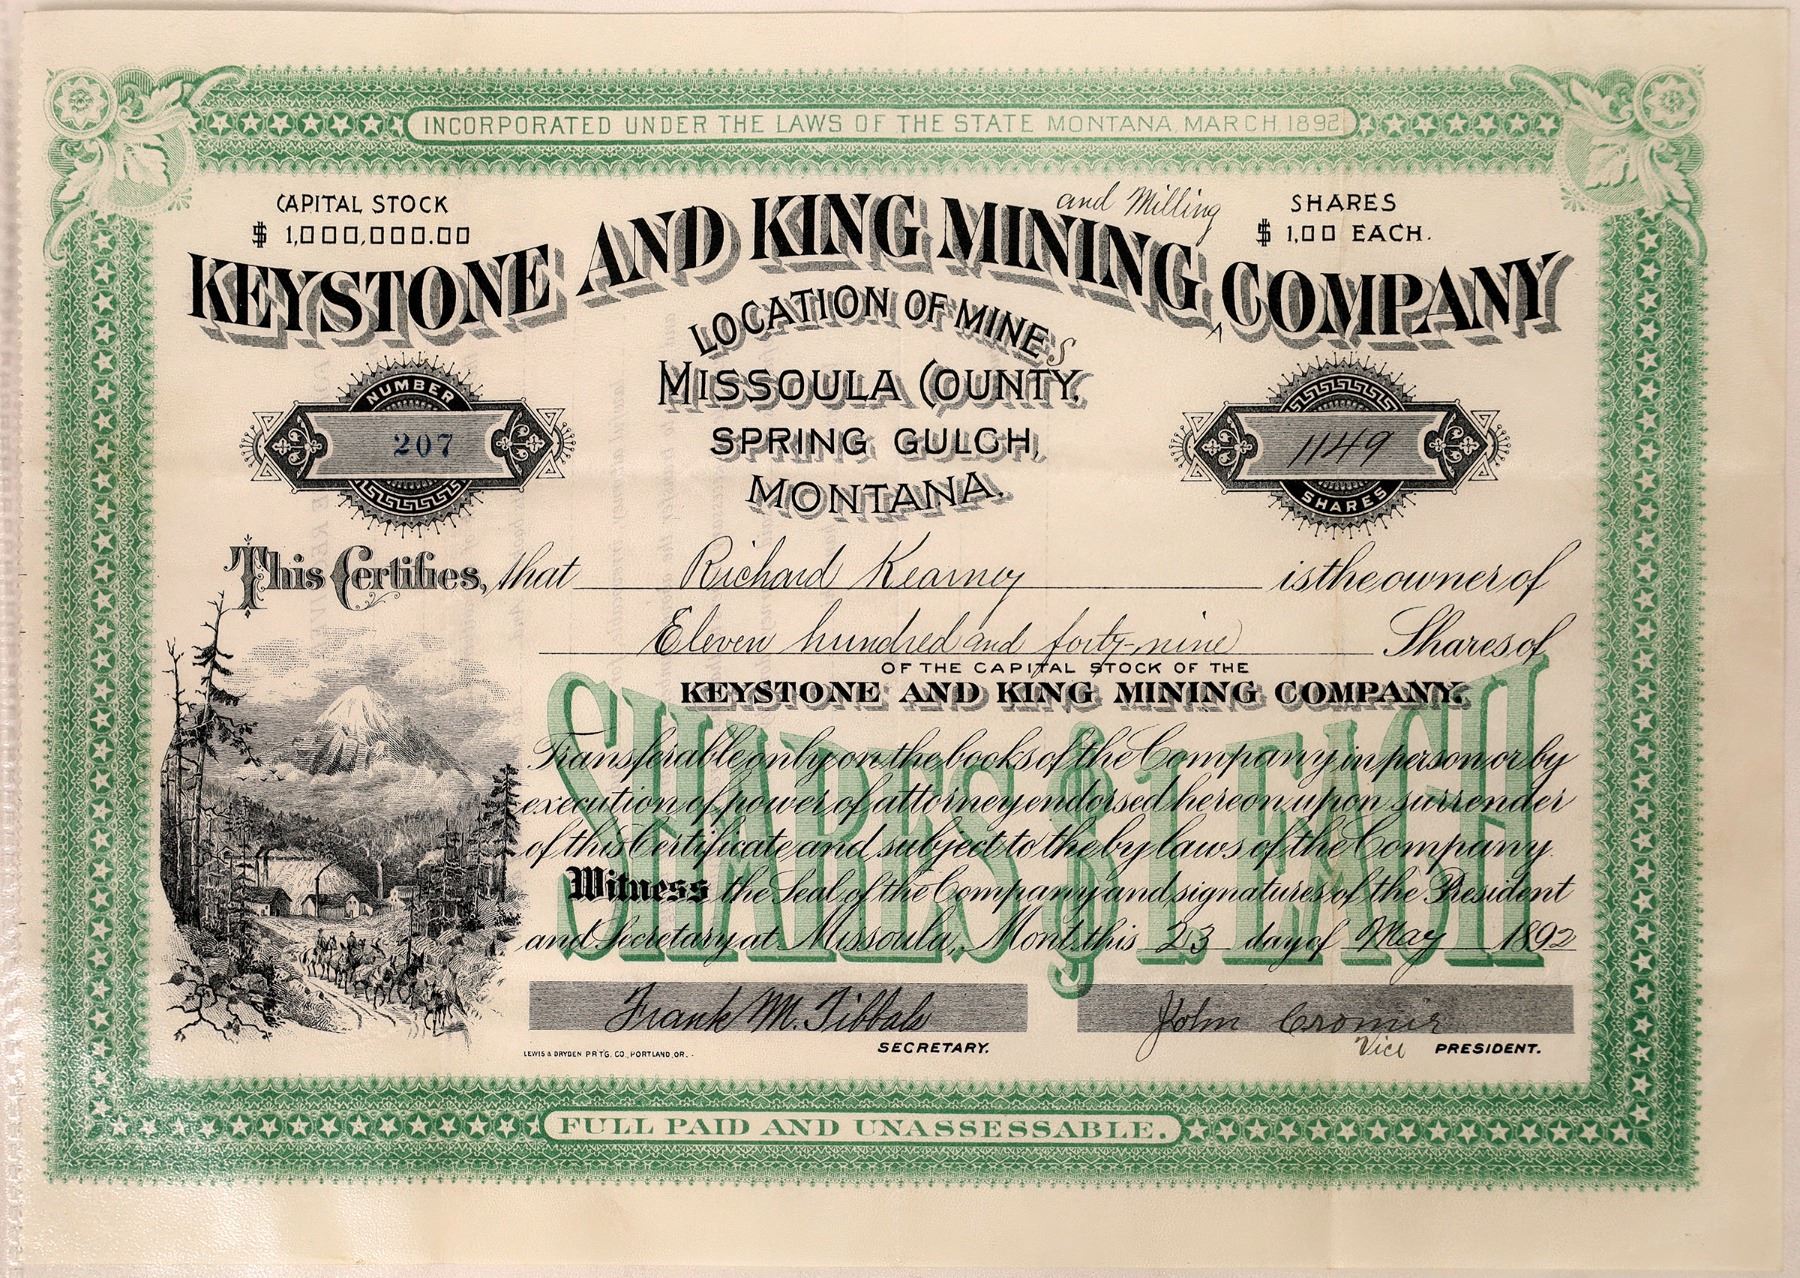 INCORPORATED UNDER THE LAWS OF THE STATE MONTANA, MARCH 1892
CAPITAL STOCK
$ 1,000,000.00
SHARES
$ 1,00 EACH.
and Milling
KEYSTONE AND KING MINING ^ COMPANY
LOCATION OF MINES
MISSOULA COUNTY,
SPRING GULCH,
MONTANA.
NUMBER
207
1149
SHARES
This Certifies, that Richard Kearney is the owner of
Eleven hundred and forty-nine Shares of
OF THE CAPITAL STOCK OF THE
KEYSTONE AND KING MINING COMPANY.
SHARES $1 EACH
Transferable only on the books of the Company in person or by
execution of power of attorney endorsed hereon upon surrender
of this Certificate and subject to the by laws of the Company.
Witness the Seal of the Company and signatures of the President
and Secretary at Missoula, Mont. this 23 day of May 1892
Frank M. Tibbals
SECRETARY.
John Cromir
Vice PRESIDENT.
LEWIS & DRYDEN PRT'G. CO., PORTLAND, OR.
FULL PAID AND UNASSESSABLE.